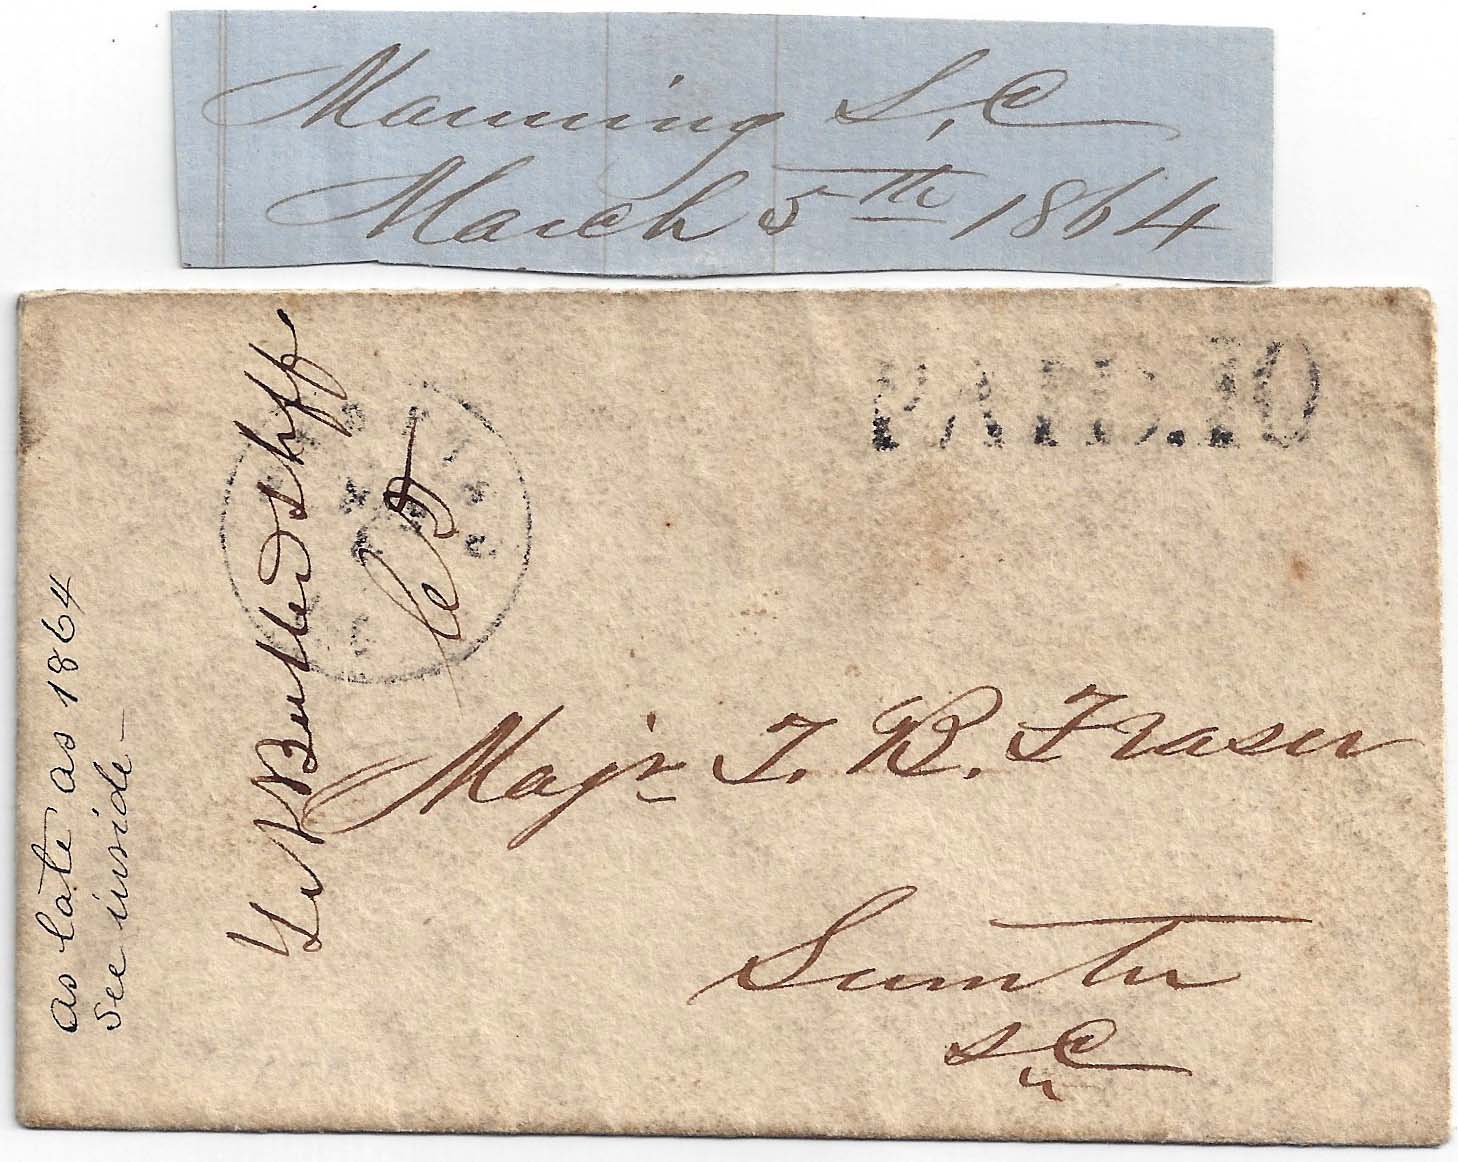 Manning S,C
March 5th 1864
PAID.10
Majr T. B. Fraser
Sumter
S C
as late as 1864
see inside -